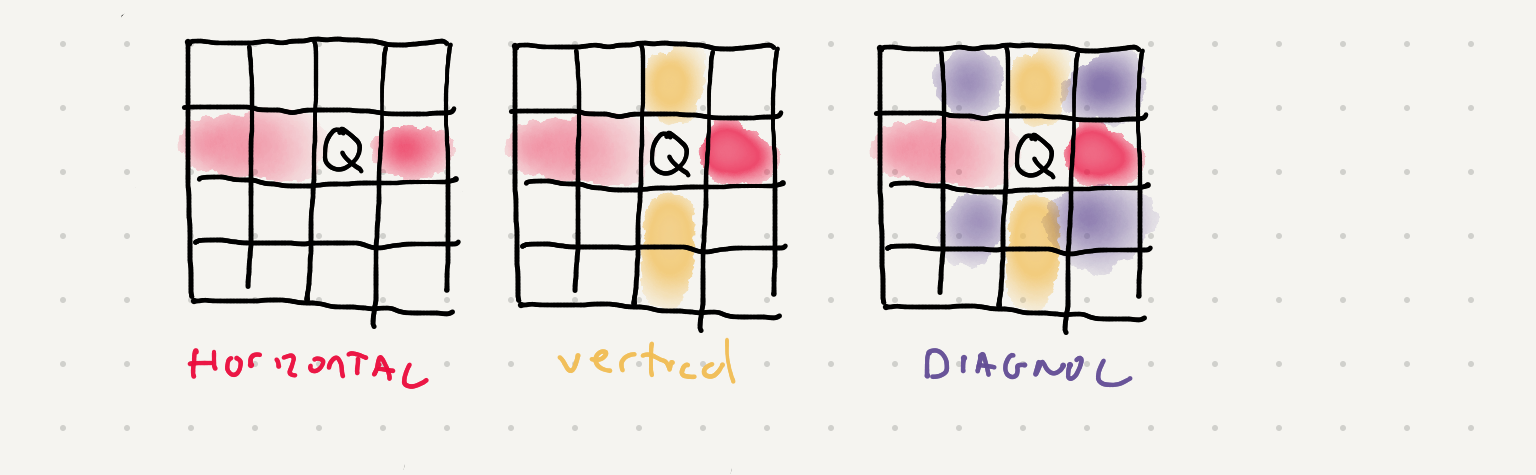 Q Q Q
HORIZONTAL vertical DIAGNOL